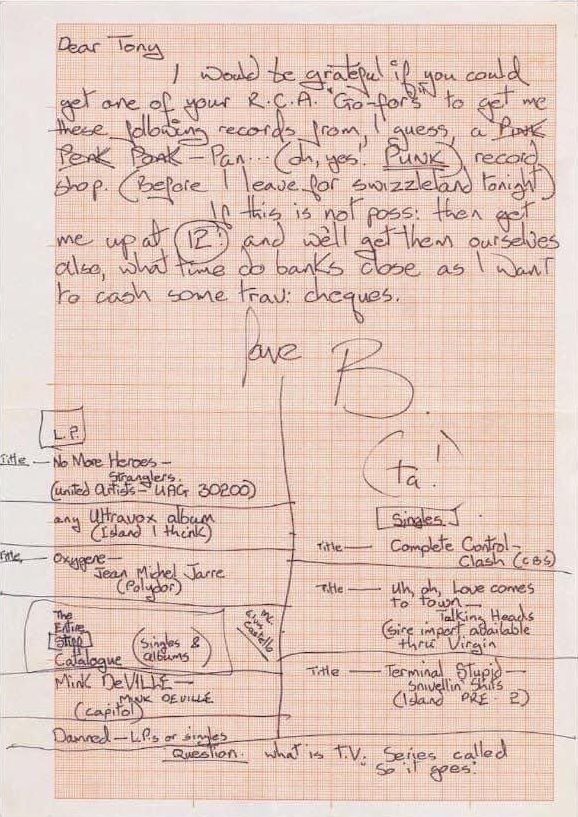 Dear Tony
I would be grateful if you could
get one of your R.C.A. "Go-fors" to get me
these following records from, I guess, a Punk
Penk Ponk – Pan... (oh, yes! PUNK) record
shop. (Before I leave for swizzleland tonight)
If this is not poss: then get
me up at 12: and we'll get them ourselves
also, what time do banks close as I want
to cash some trav: cheques.
Dave B.
(ta!)
L.P.
Title — No More Heroes —
Stranglers.
(United Artists – UAG 30200)
any Ultravox album
(Island I think)
Title — Oxygene —
Jean Michel Jarre
(Polydor)
The
Entire
Stiff
Catalogue
(Singles &
albums)
inc.
Elvis
Costello
Mink DeVILLE —
MINK DEVILLE
(capitol)
Damned — L.P.s or singles
Singles
Title — Complete Control —
Clash (CBS)
Title — Uh, oh, Love comes
to town —
Talking Heads
(Sire import available
thru Virgin
Title — Terminal Stupid —
Snivellin' Shits
(Island PRE - 2)
Question. what is T.V. Series called
So it goes.